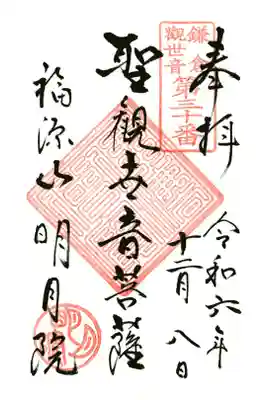 奉拝
令和六年
十二月八日
鎌倉
觀世音
第三十番
聖觀世音菩薩
福源山明月院